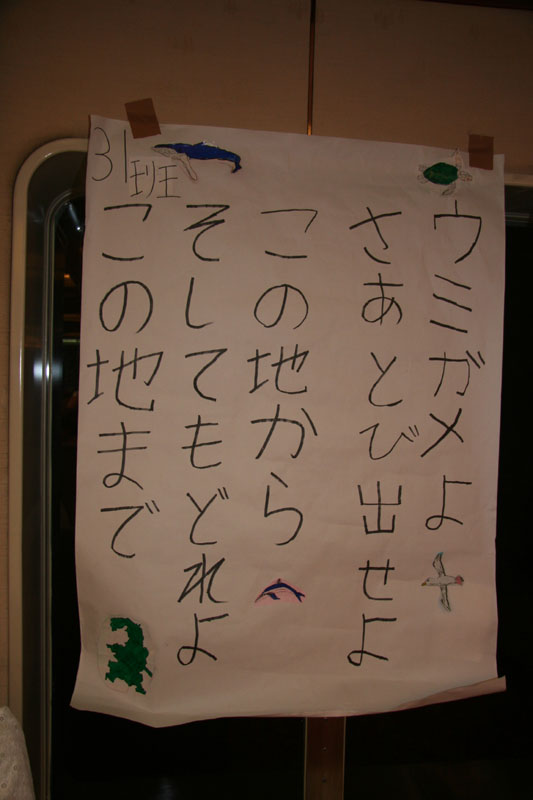 ウミガメよ
さあとび出せよ
この地から
そしてもどれよ
この地まで
31班